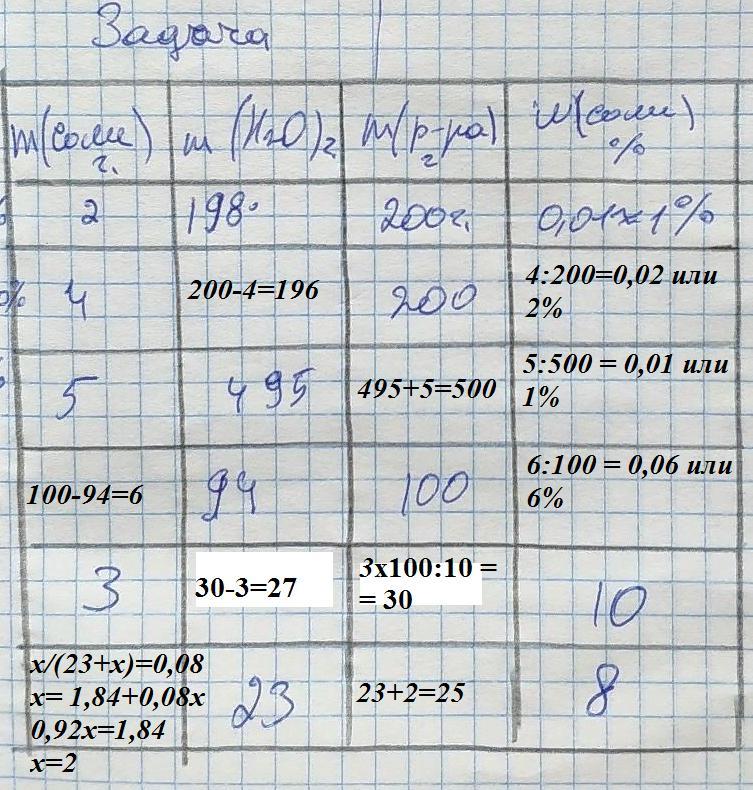 Задача
m(соли) г. m(H₂O) г m(р-ра) г w(соли) %
2 198 200г. 0,01 × 1%
4 200-4=196 200 4:200=0,02 или
2%
5 495 495+5=500 5:500 = 0,01 или
1%
100-94=6 94 100 6:100 = 0,06 или
6%
3 30-3=27 3x100:10 =
= 30 10
x/(23+x)=0,08
x= 1,84+0,08x
0,92x=1,84
x=2 23 23+2=25 8